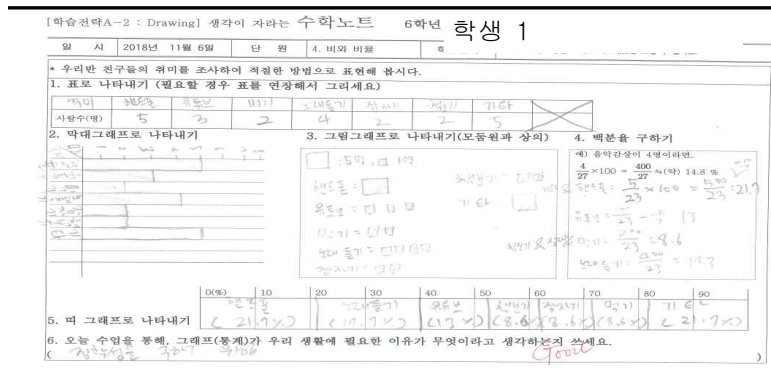 [학습전략A-2 : Drawing] 생각이 자라는 수학노트 6학년 학생 1
일 시 2018년 11월 6일 단 원 4. 비와 비율
* 우리반 친구들의 취미를 조사하여 적절한 방법으로 표현해 봅시다.
1. 표로 나타내기 (필요할 경우 표를 연장해서 그리세요)
취미 핸드폰 유튜브 먹기 노래듣기 잠자기 책읽기 기타
사람수(명) 5 3 2 4 2 2 5
2. 막대그래프로 나타내기
3. 그림그래프로 나타내기(모둠원과 상의)
□ :5명, □ 1명
핸드폰 = □
유튜브 = □ □ □
먹기 = □□
노래 듣기 = □□□□
잠자기 = □□
기타 = □
4. 백분율 구하기
예) 음악감상이 4명이라면,
4/27 ×100 = 400/27 ≒(약) 14.8 %
핸드폰 = 5/23 × 100 = 500/23 = 21.7
유튜브 = 13
먹기 = 200/23 = 8.6
노래듣기 = 400/23
0(%) 10 20 30 40 50 60 70 80 90
핸드폰 노래듣기 유튜브 잠자기 먹기 기타
5. 띠 그래프로 나타내기 ( 21.7%) (13%) (8.6%) (8.6%) (8.6%) ( 21.7%)
6. 오늘 수업을 통해, 그래프(통계)가 우리 생활에 필요한 이유가 무엇이라고 생각하는지 쓰세요.
( 구하기 위해 Good )